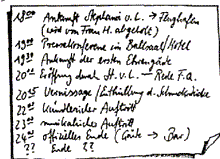 18⁰⁰ Ankunft Stephanie v. L. → Flughafen
(wird von Frau H. abgeholt)
19⁰⁰ Pressekonferenz im Ballsaal/Hotel
19³⁰ Ankunft der ersten Ehrengäste
20⁰⁰ Eröffnung durch H. v. L. – Rede F. a.
20⁴⁵ Vernissage / Enthüllung d. Schmuckstücke
22⁰⁰ Künstlerischer Auftritt
23⁰⁰ musikalischer Auftritt
24⁰⁰ offizielles Ende (Gäste → Bar)
?? Ende ??